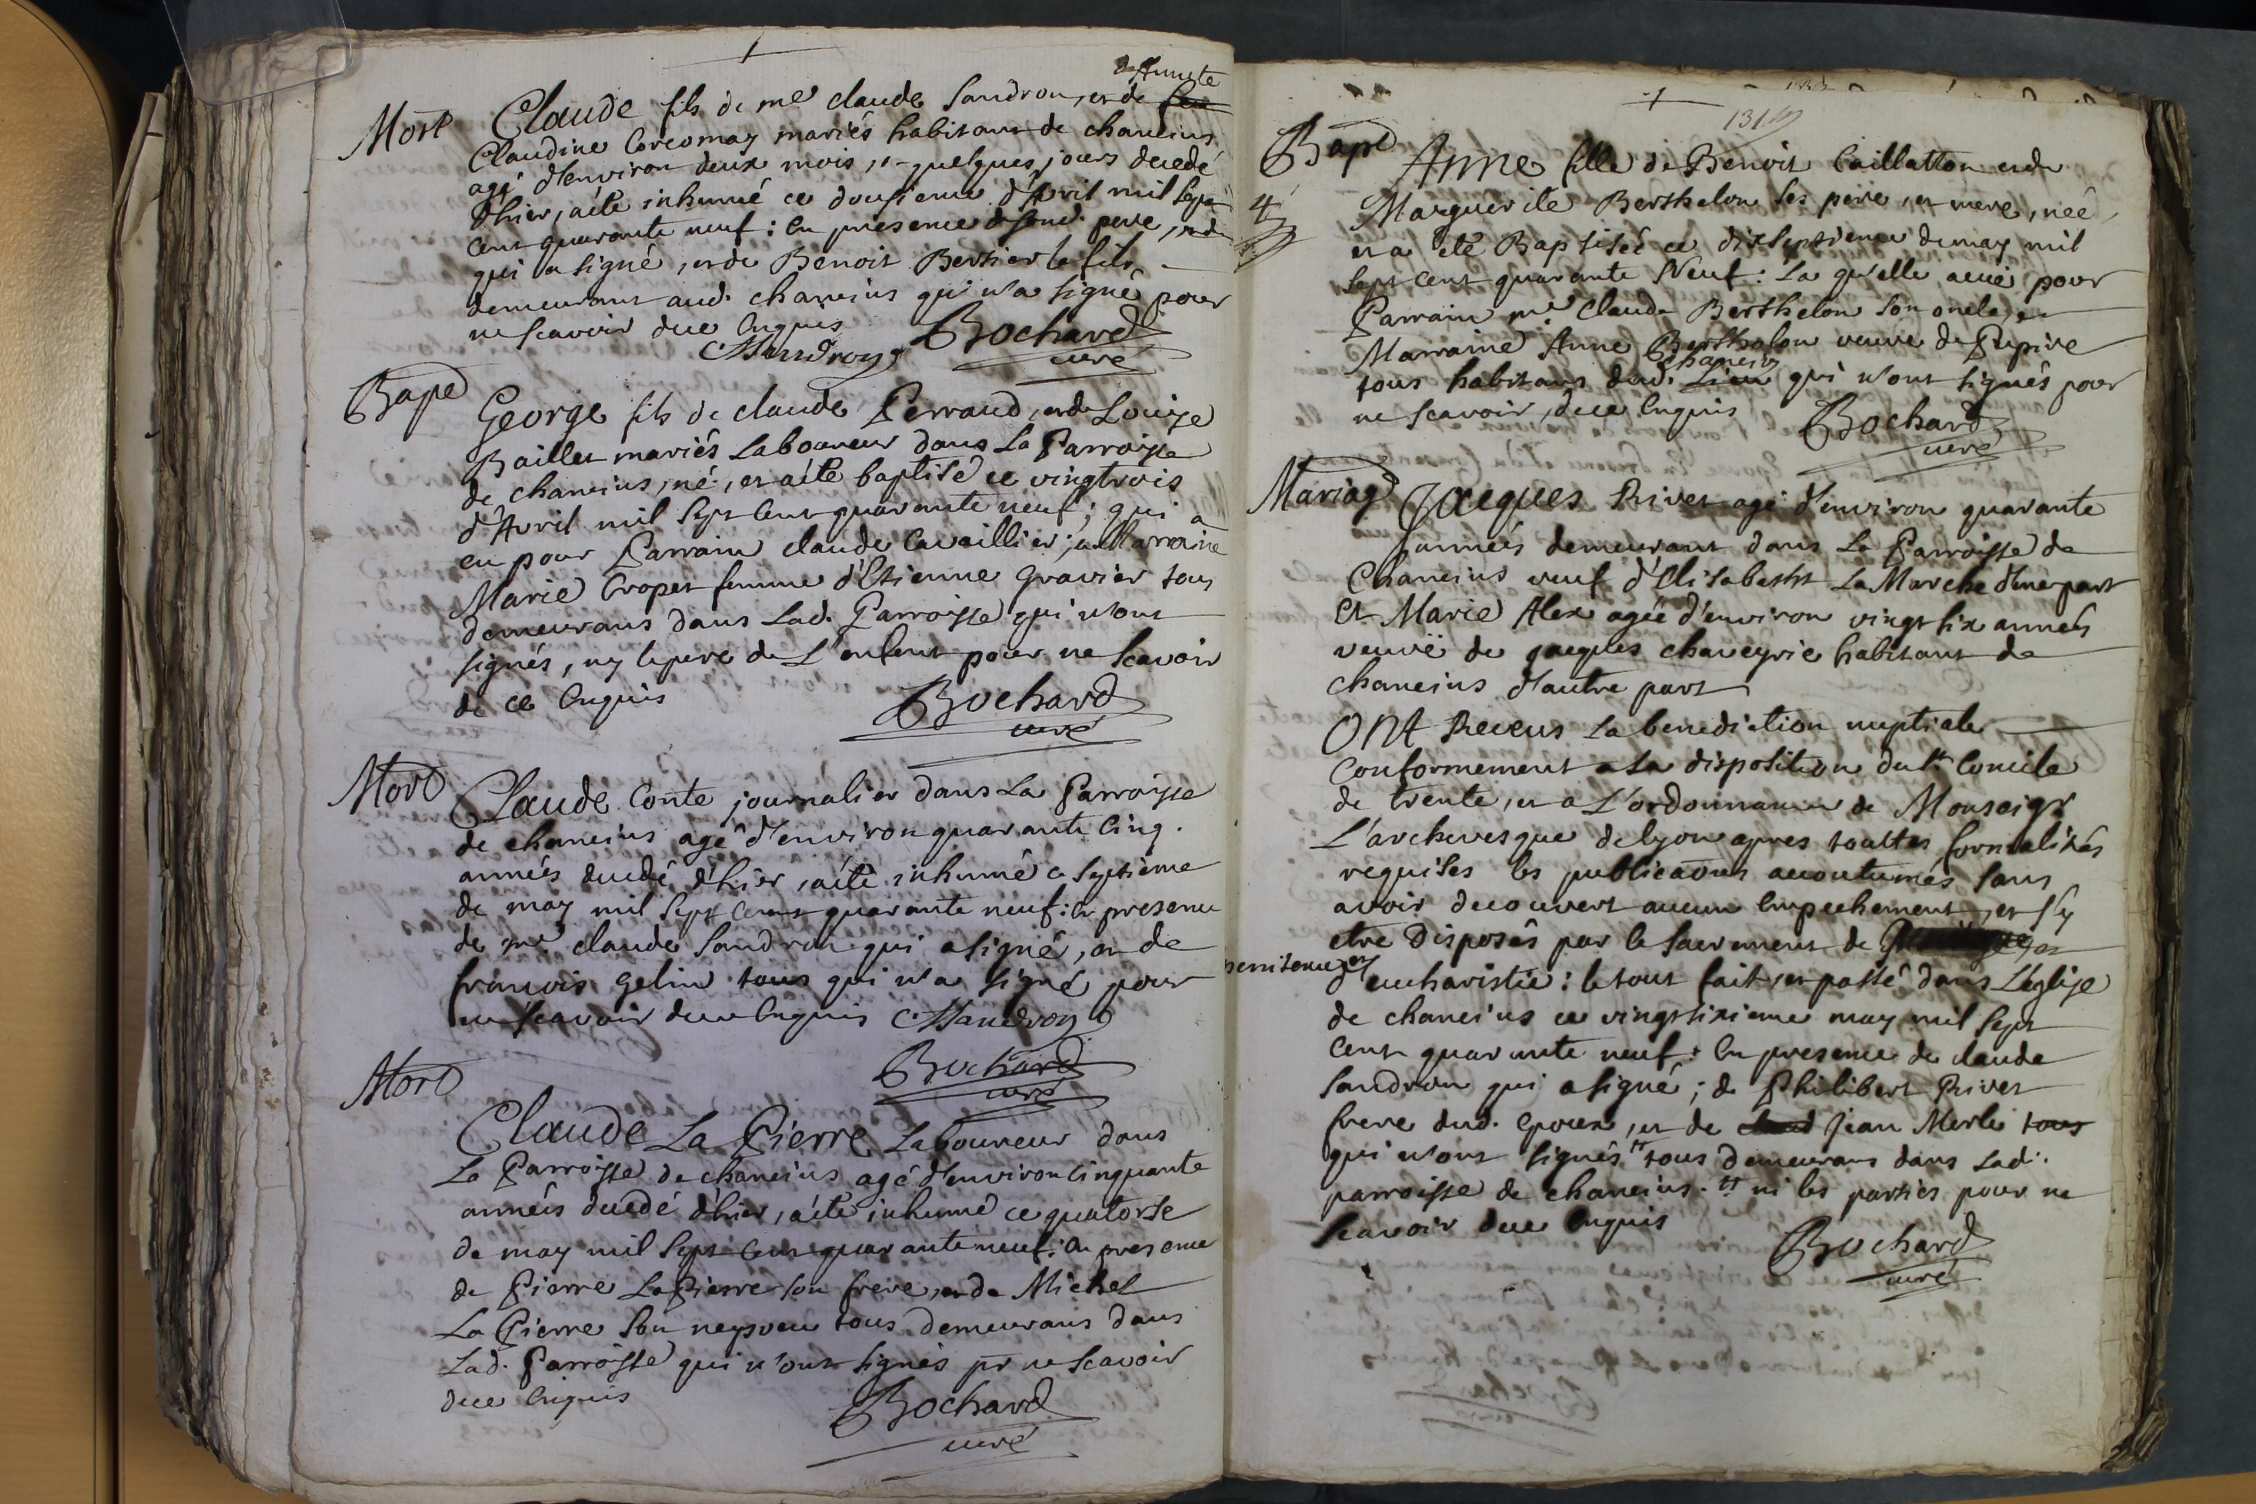 deffuncte
Mort Claude fils de me claude Sandron, et de feu
Claudine Corcomay mariés habitant de chaneins
agé d'environ deux mois, et quelques jours decedé
d'hier, a été inhumé ce dousieme d'Avril mil sept
cent quarante neuf: en presence de sond. pere,
qui a signé, et de Benoit Bertier le fils
demeurant aud. chaneins qui n'a signé pour
ne scavoir de ce enquis
CSandron Bochard
curé
Bapt George fils de claude Perraud, et de Louise
Baillet mariés Laboureur dans La Parroisse
de chaneins, né, et a été baptisé ce vingtrois
d'Avril mil sept cent quarante neuf; qui a
eu pour Parrain claude Cavaillier; et Marraine
Marie Cropet femme d'Etienne Gravier tous
demeurans dans Lad. Parroisse qui n'ont
signés, ny le pere de L'enfent pour ne scavoir
de ce enquis Bochard
curé
Mort Claude Conte journalier dans La Parroisse
de chaneins agé d'environ quarante cinq
années decedé d'hier, a été inhumé ce septième
de may mil sept cent quarante neuf: en presence
de me claude Sandron qui a signé, et de
francois Gelin tous qui n'a signé pour
ne scavoir de ce enquis CSandron
Bochard
curé
Mort
Claude La Pierre Laboureur dans
La Parroisse de chaneins agé d'environ cinquante
années decedé d'hier, a été inhumé ce quatorse
de may mil sept cent quarante neuf: en presence
de Pierre La Pierre son frere, et de Michel
La Pierre son nepveu tous demeurans dans
Lad. Parroisse qui n'ont signés pr ne scavoir
de ce enquis
Bochard
curé
131
Bapt Anne fille de Benoit Caillatton et de
4 Marguerite Berthelon ses pere, et mere, née,
et a été Baptisée ce dixseptieme de may mil
sept cent quarante Neuf: La qu'elle a eüe pour
Parrain me Claude Berthelon son oncle, et
Marraine Anne Berthelon veuve de Pupive
chaneins
tous habitans dud. Lieu qui n'ont signés pour
ne scavoir, de ce enquis Bochard
curé
Mariage Jacques Rivet agé d'environ quarante
années demeurant dans La Parroisse de
Chaneins veuf d'Elisabetht La Marche d'une part
Et Marie Alex agée d'environ vingt six années
veuvë de jacques chaveyrie habitant de
chaneins d'autre part
ONt Receus La benediction nuptiale
conformement a La disposition du St Concile
de trente, et a L'ordonnance de Monseigr
L'archevesque de Lyon apres touttes formalités
requises les publications accoutumés sans
avoir decouvert aucun empechement, et s'y
etre Disposés par le sacrement de
pénitence et
d'eucharistie: le tout fait et passé dans L'eglise
de chaneins ce vingt sixieme may mil sept
cent quarante neuf: en presence de claude
Sandron qui a signé; de Philibert Rivet
frere dud. epoux, et de claud Jean Merle tous
qui n'ont signés tous demeurans dans Lad.
parroisse de chaneins. ni les parties pour ne
scavoir de ce enquis
Bochard
curé